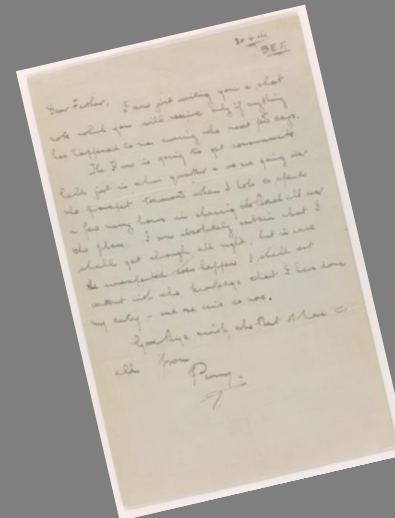 30-6-16
B.E.F.
Dear Father, I am just writing you a short
note which you will receive only if anything
has happened to me during the next few days.
The Hun is going to get consummate
hell just in this quarter & we are going over
the parapet tomorrow when I hope to spend
a few merry hours in chasing the Bosch all over
the place. I am absolutely certain that I
shall get through all right, but in case
the unexpected does happen I shall rest
content with the knowledge that I have done
my duty – and one can't do more.
Goodbye and with the Best of love to
all from
Percy